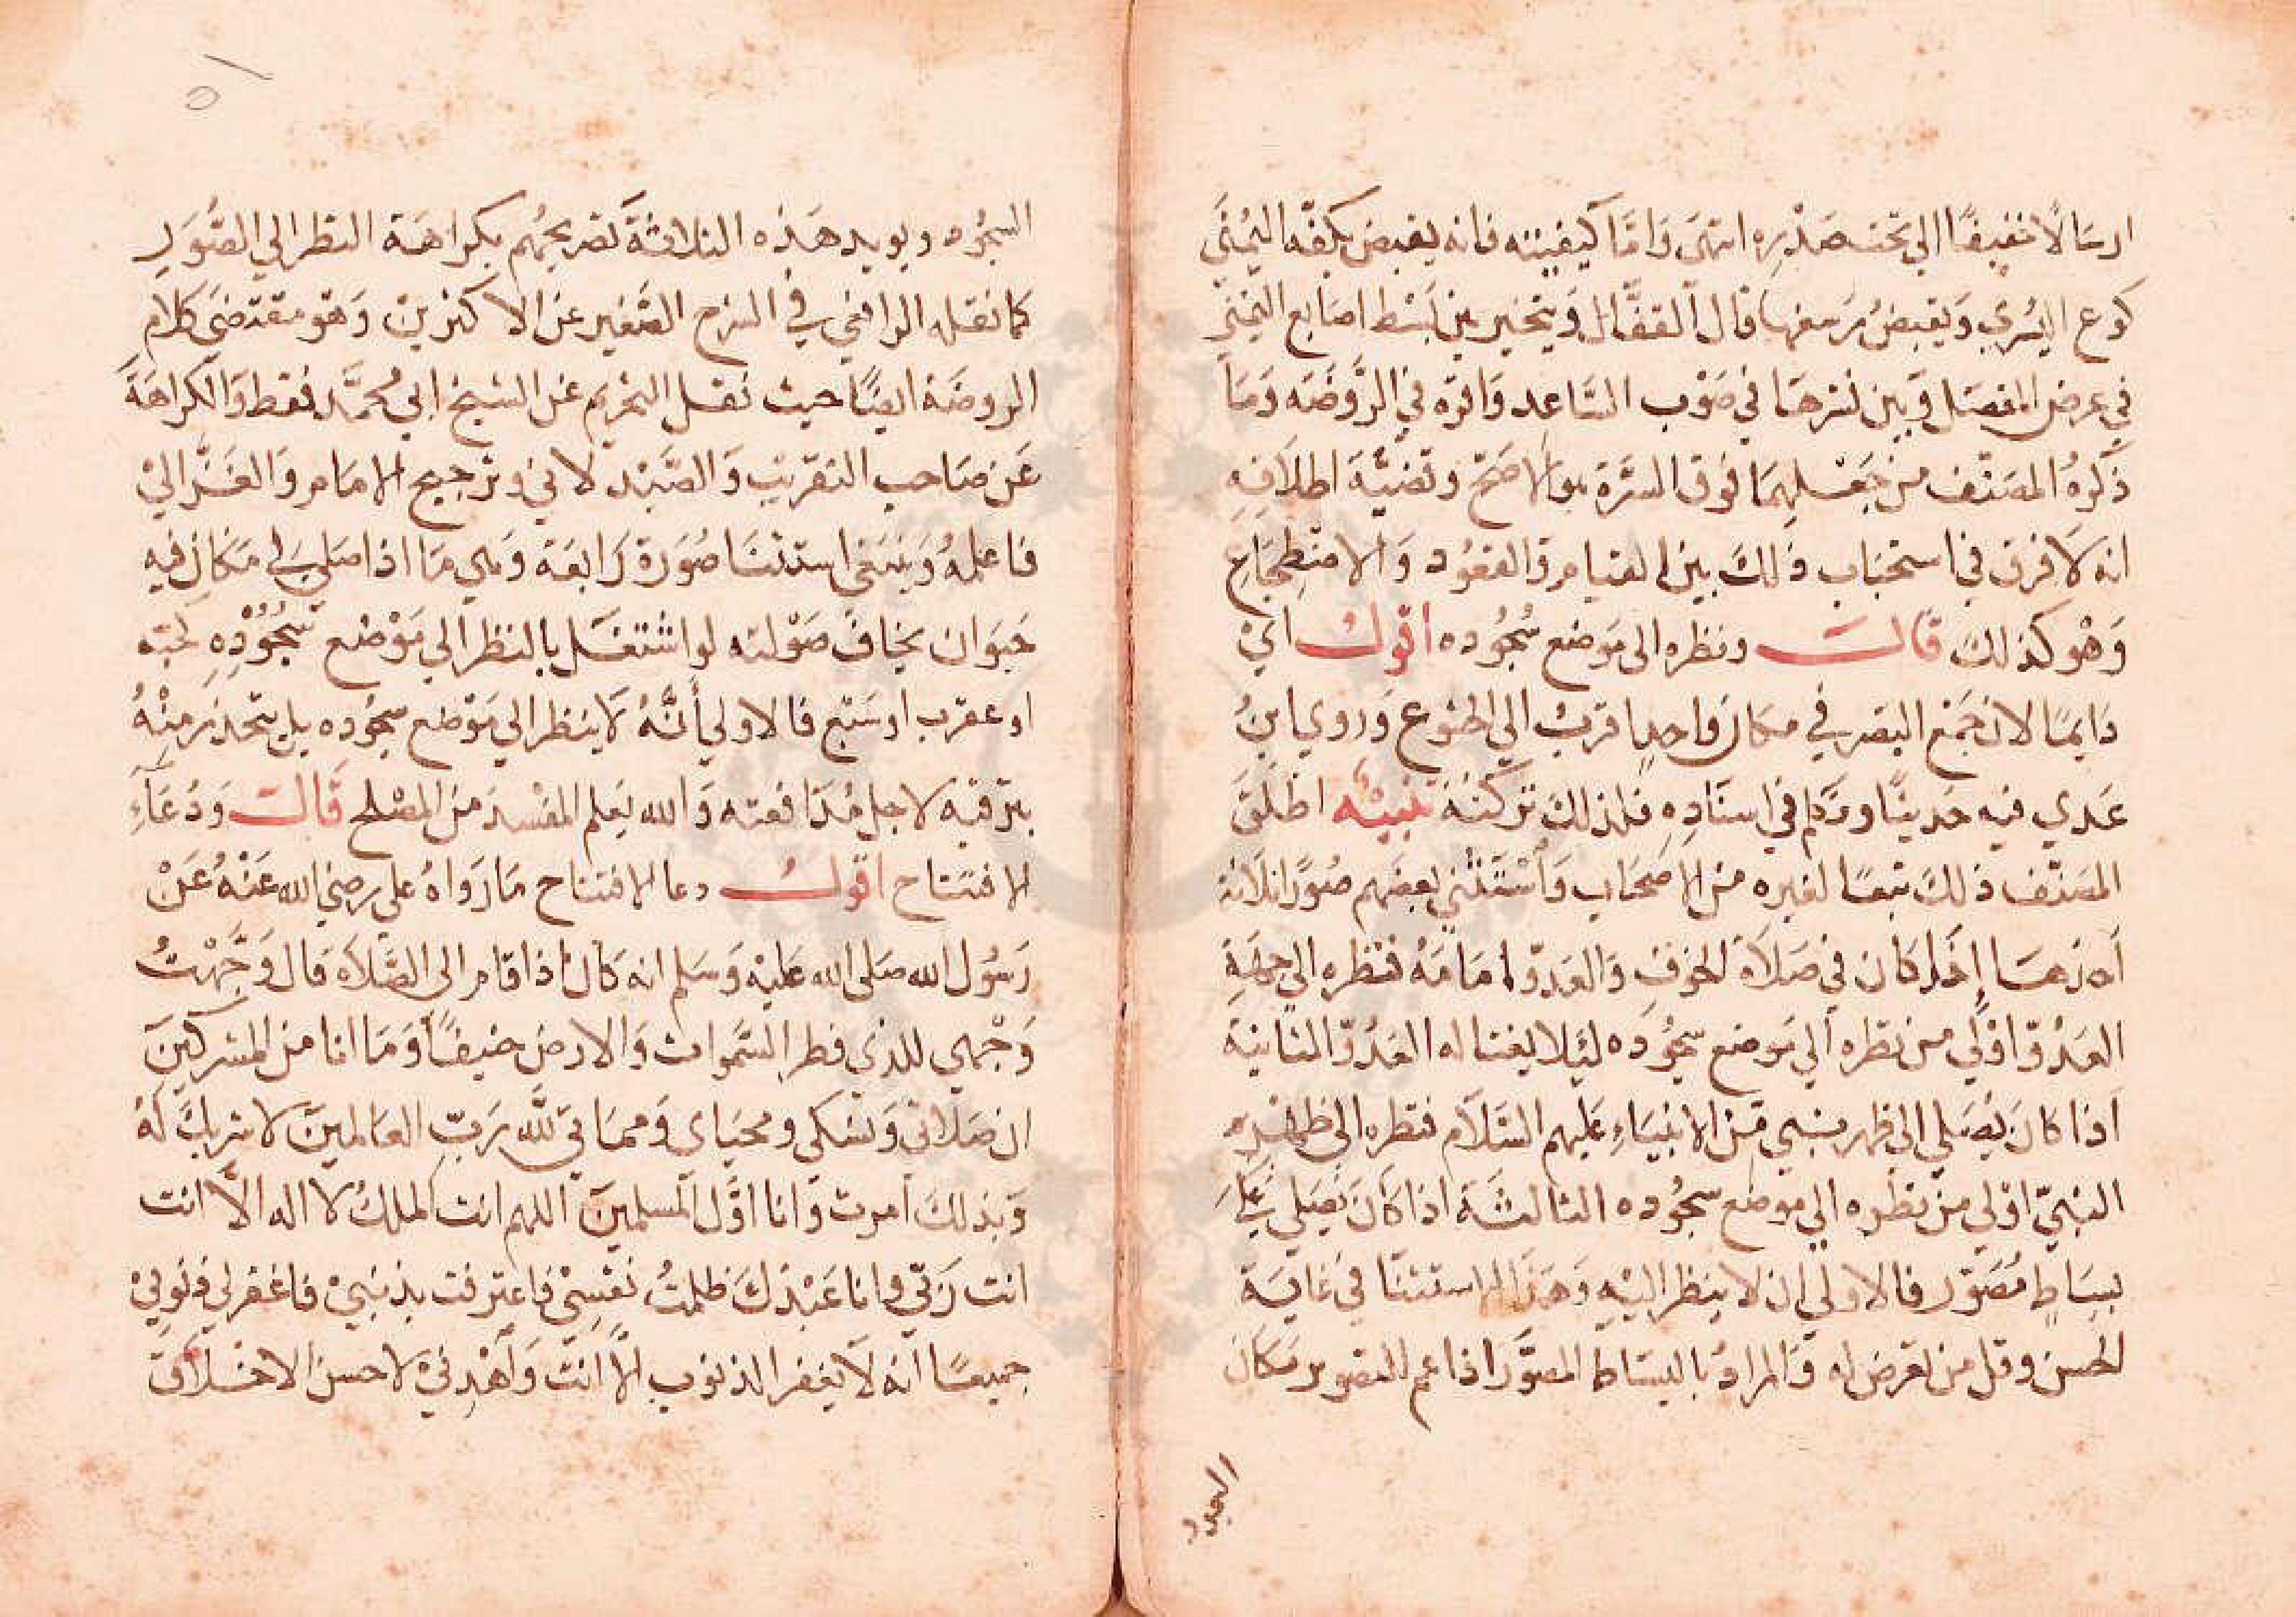 ارسالا خفيفا الي تحت صدره انتهى واما كيفيته فانه يقبض بكفه اليمنى
كوع اليسري ويقبض رسغها قال القفال ويتخير بين بسط اصابع اليمنى
في عرض المفصل وبين نشرها في صوب الساعد واقره في الروضه وما
ذكره المصنف من جعلهما فوق السرة هو الاصح وقضية اطلاقه
انه لا فرق في استحباب ذلك بين القيام والقعود والاضطجاع
وهو كذلك قالـــــت ونظره الى موضع سجوده اقولـــــ اي
دايما لان جمع البصر في مكان واحد اقرب الي الخشوع وروي ابن
عدي فيه حديثا وتكلم في اسناده فلذلك تركته تنبيه اطلق
المصنف ذلك تبعا لغيره من الاصحاب واستثني بعضهم صورا ثلاثة
احدها إذا كان في صلاة الخوف والعدو امامه فنظره الي جهة
العدو اولي من نظره الي موضع سجوده ليلا يغتاله العدو الثانية
اذا كان يصلي الي ظهر نبي من الانبياء عليهم السلام فنظره الى ظهر
النبي اولي من نظره الي موضع سجوده الثالثة اذا كان يصلي على
بساط مصور فالاولي ان لا ينظر اليه وهذا الاستثنا في غاية
الحسن وقل من تعرض له والمراد بالبساط المصور اذا عم التصوير مكان
السجود
السجوده ويويد هذه الثلاثة تصريحهم بكراهة النظر الي الصور
كما نقله الرافعي في الشرح الصغير عن الاكثرين وهو مقتضى كلام
الروضة ايضا حيث نقل التحريم عن الشيخ ابي محمد فقط والكراهة
عن صاحب التقريب والصيدلاني وترجيح الامام والغزالي
فاعلمه وينبغي استثنا صورة رابعة وهي ما اذا صلى في مكان فيه
حيوان يخاف صولته لو اشتغل بالنظر الي موضع سجوده كحية
او عقرب او سبع فالاولي أنه لا ينظر الي موضع سجوده بل يتحذر منه
بترقبه لاجل مدافعته والله يعلم المفسد من المصلح قالـــت ودعاء
الافتتاح اقولـــــ دعا الافتتاح ما رواه علي رضي الله عنه عن
رسول الله صلى الله عليه وسلم انه كان اذا قام الى الصلاه قال وجهت
وجهي للذي فطر السموات والارض حنيفا وما انا من المشركين
ان صلاتي ونسكى ومحياى ومماتي لله رب العالمين لا شريك له
وبذلك امرت وانا اول المسلمين اللهم انت الملك لا اله الا انت
انت ربي وانا عبدك ظلمت نفسي فاعترفت بذنبي فاغفر لي ذنوبي
جميعا انه لا يغفر الذنوب الا انت وأهدني لاحسن الاخلاق